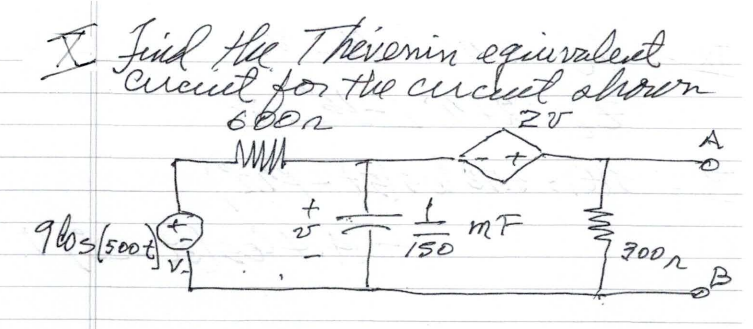 X Find the Thévenin equivalent
circuit for the circuit shown
600Ω
2v
A
- +
+
v
-
1/150 mF
9cos(500t)
+
-
V
300Ω
B